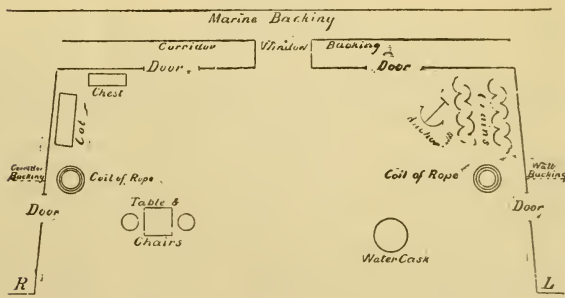 Marine Backing
Corridor Window Backing
Door. Door
Chest
Cot
Anchor
Chains
Corridor
Backing
Coil of Rope
Coil of Rope
Wall
Backing
Door
Table &
Chairs
Door
Water Cask
R L